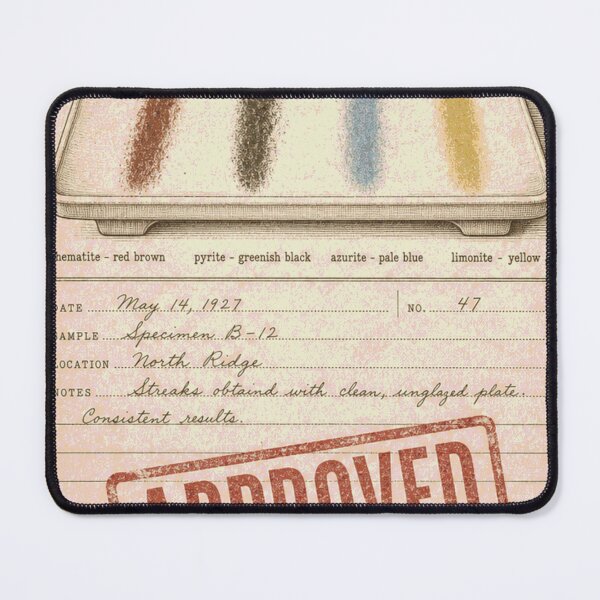 hematite - red brown pyrite - greenish black azurite - pale blue limonite - yellow
DATE May 14, 1927 NO. 47
SAMPLE Specimen B-12
LOCATION North Ridge
NOTES Streaks obtaind with clean, unglazed plate.
Consistent results.
APPROVED